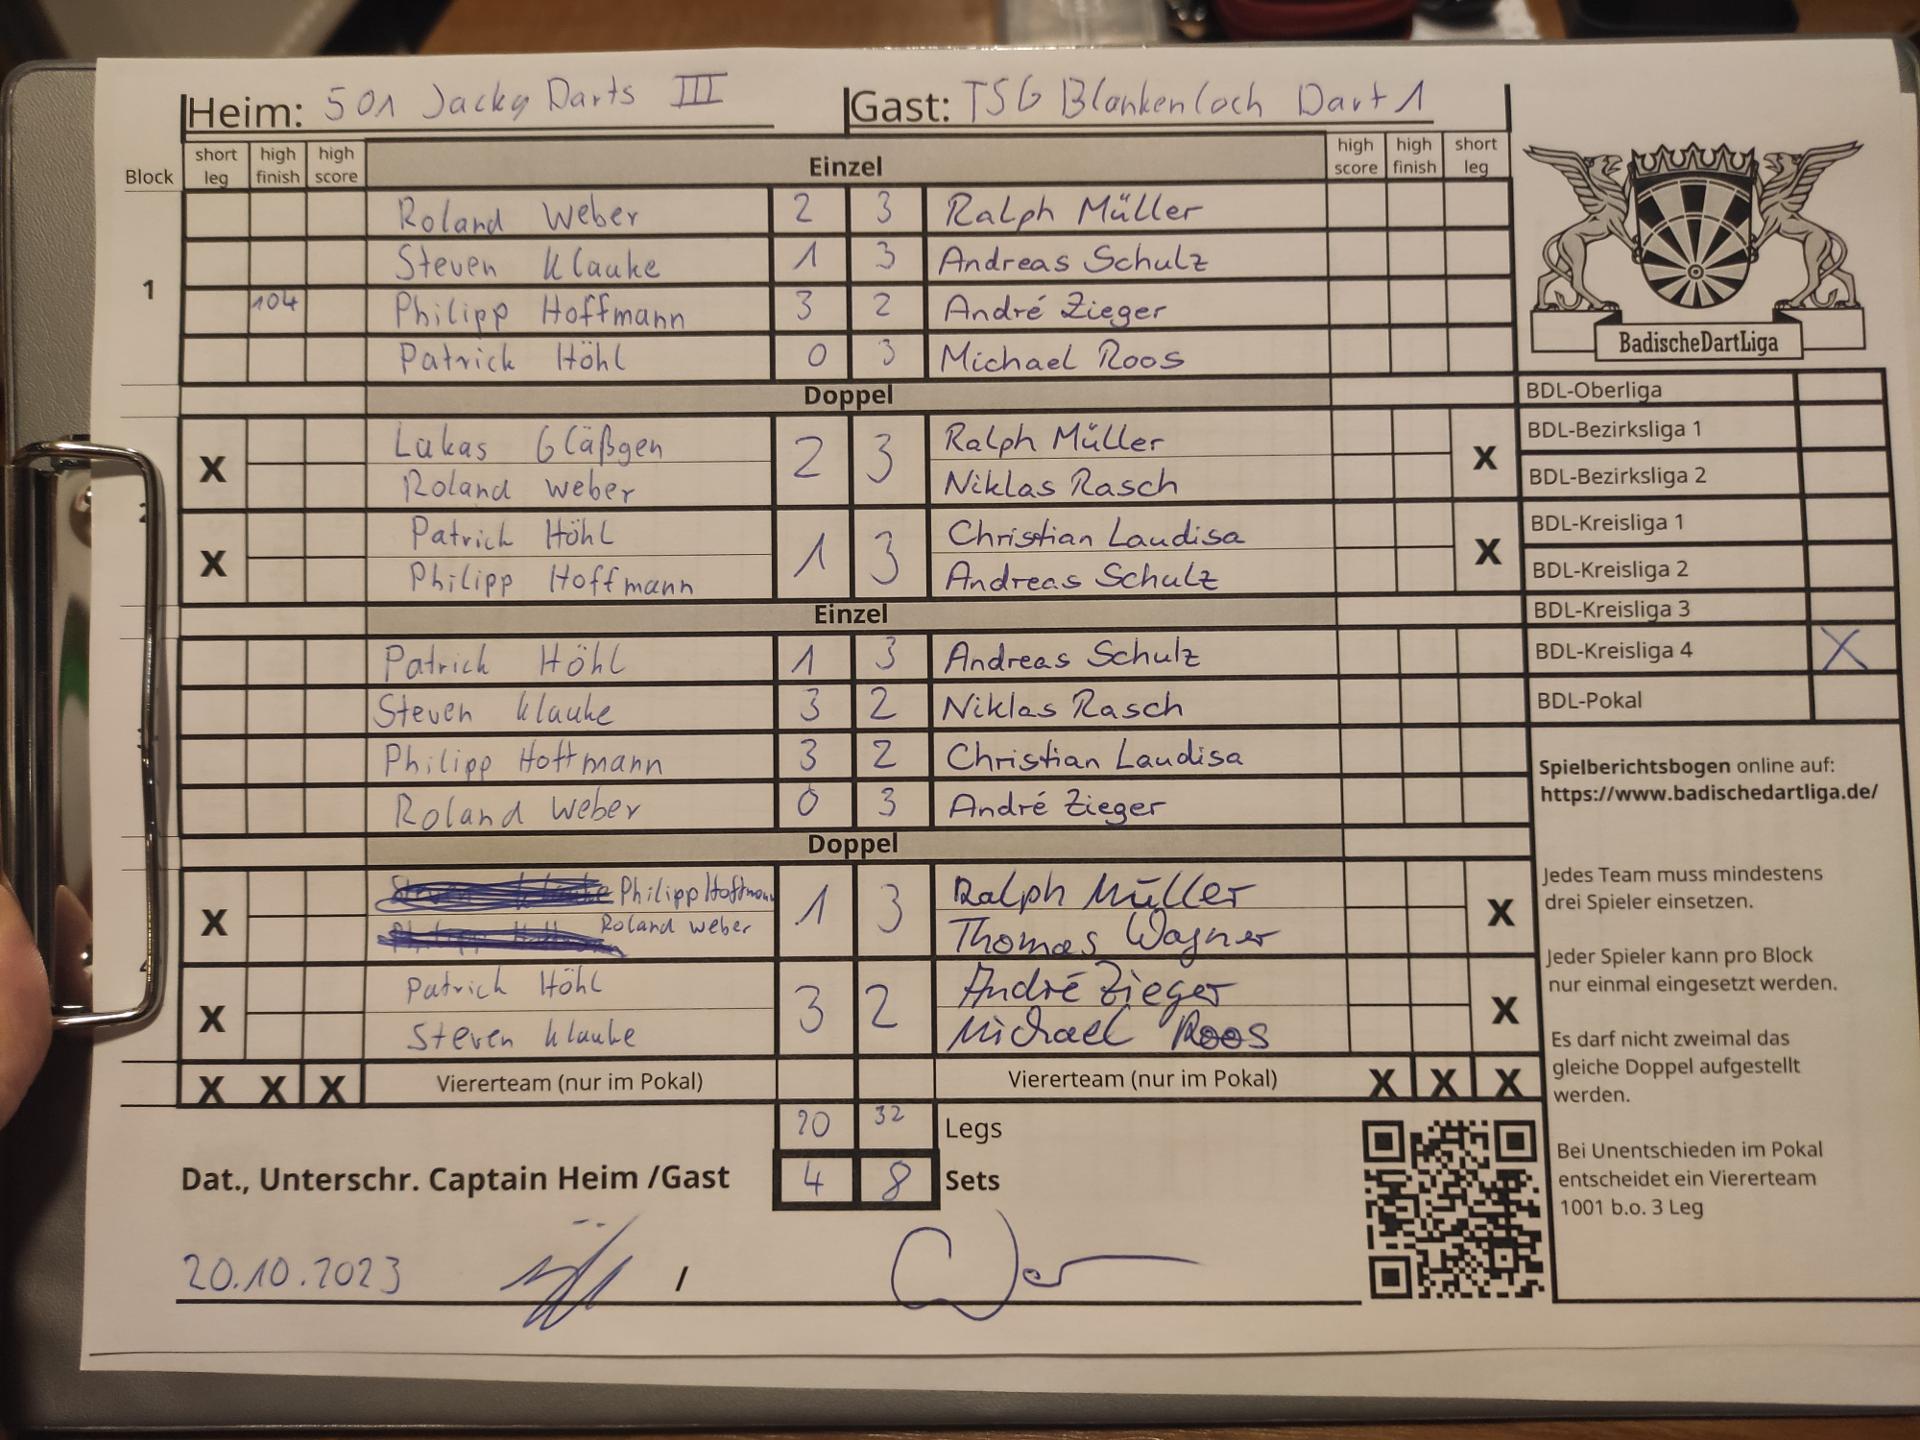 Heim: 501 Jacky Darts III Gast: TSG Blankenloch Dart 1
Block short leg high finish high score Einzel high score high finish short leg
1
Roland Weber 2 3 Ralph Müller
Steven Klauke 1 3 Andreas Schulz
104 Philipp Hoffmann 3 2 André Zieger
Patrick Höhl 0 3 Michael Roos
Doppel
X Lukas Gläßgen 2 3 Ralph Müller X
Roland Weber Niklas Rasch
2
X Patrick Höhl 1 3 Christian Laudisa X
Philipp Hoffmann Andreas Schulz
Einzel
Patrick Höhl 1 3 Andreas Schulz
Steven Klauke 3 2 Niklas Rasch
Philipp Hoffmann 3 2 Christian Laudisa
Roland Weber 0 3 André Zieger
Doppel
X Philipp Hoffmann 1 3 Ralph Müller X
Roland Weber Thomas Wagner
4
X Patrick Höhl 3 2 André Zieger X
Steven Klauke Michael Roos
X X X Viererteam (nur im Pokal) Viererteam (nur im Pokal) X X X
20 32 Legs
Dat., Unterschr. Captain Heim /Gast 4 8 Sets
20.10.2023 /
BadischeDartLiga
BDL-Oberliga
BDL-Bezirksliga 1
BDL-Bezirksliga 2
BDL-Kreisliga 1
BDL-Kreisliga 2
BDL-Kreisliga 3
BDL-Kreisliga 4 X
BDL-Pokal
Spielberichtsbogen online auf:
https://www.badischedartliga.de/
Jedes Team muss mindestens
drei Spieler einsetzen.
Jeder Spieler kann pro Block
nur einmal eingesetzt werden.
Es darf nicht zweimal das
gleiche Doppel aufgestellt
werden.
Bei Unentschieden im Pokal
entscheidet ein Viererteam
1001 b.o. 3 Leg